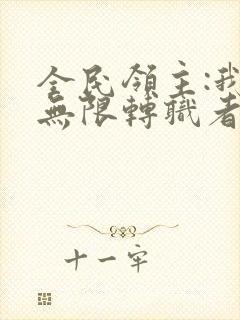 全民領主:我
無限轉職者
十一牢